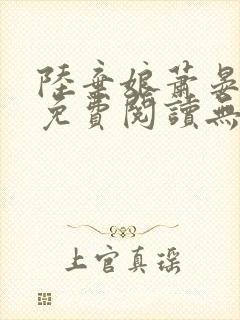 陸棄娘蕭晏
免費閱讀無
上官真瑶